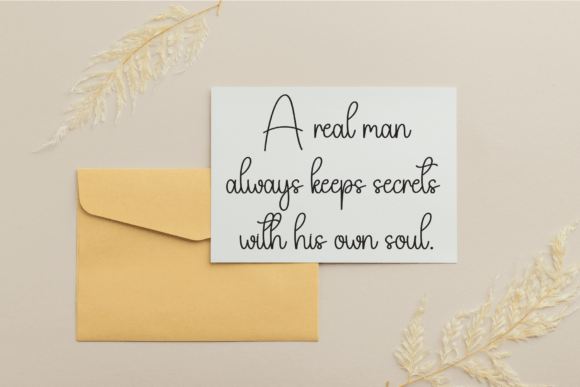 A real man
always keeps secrets
with his own soul.